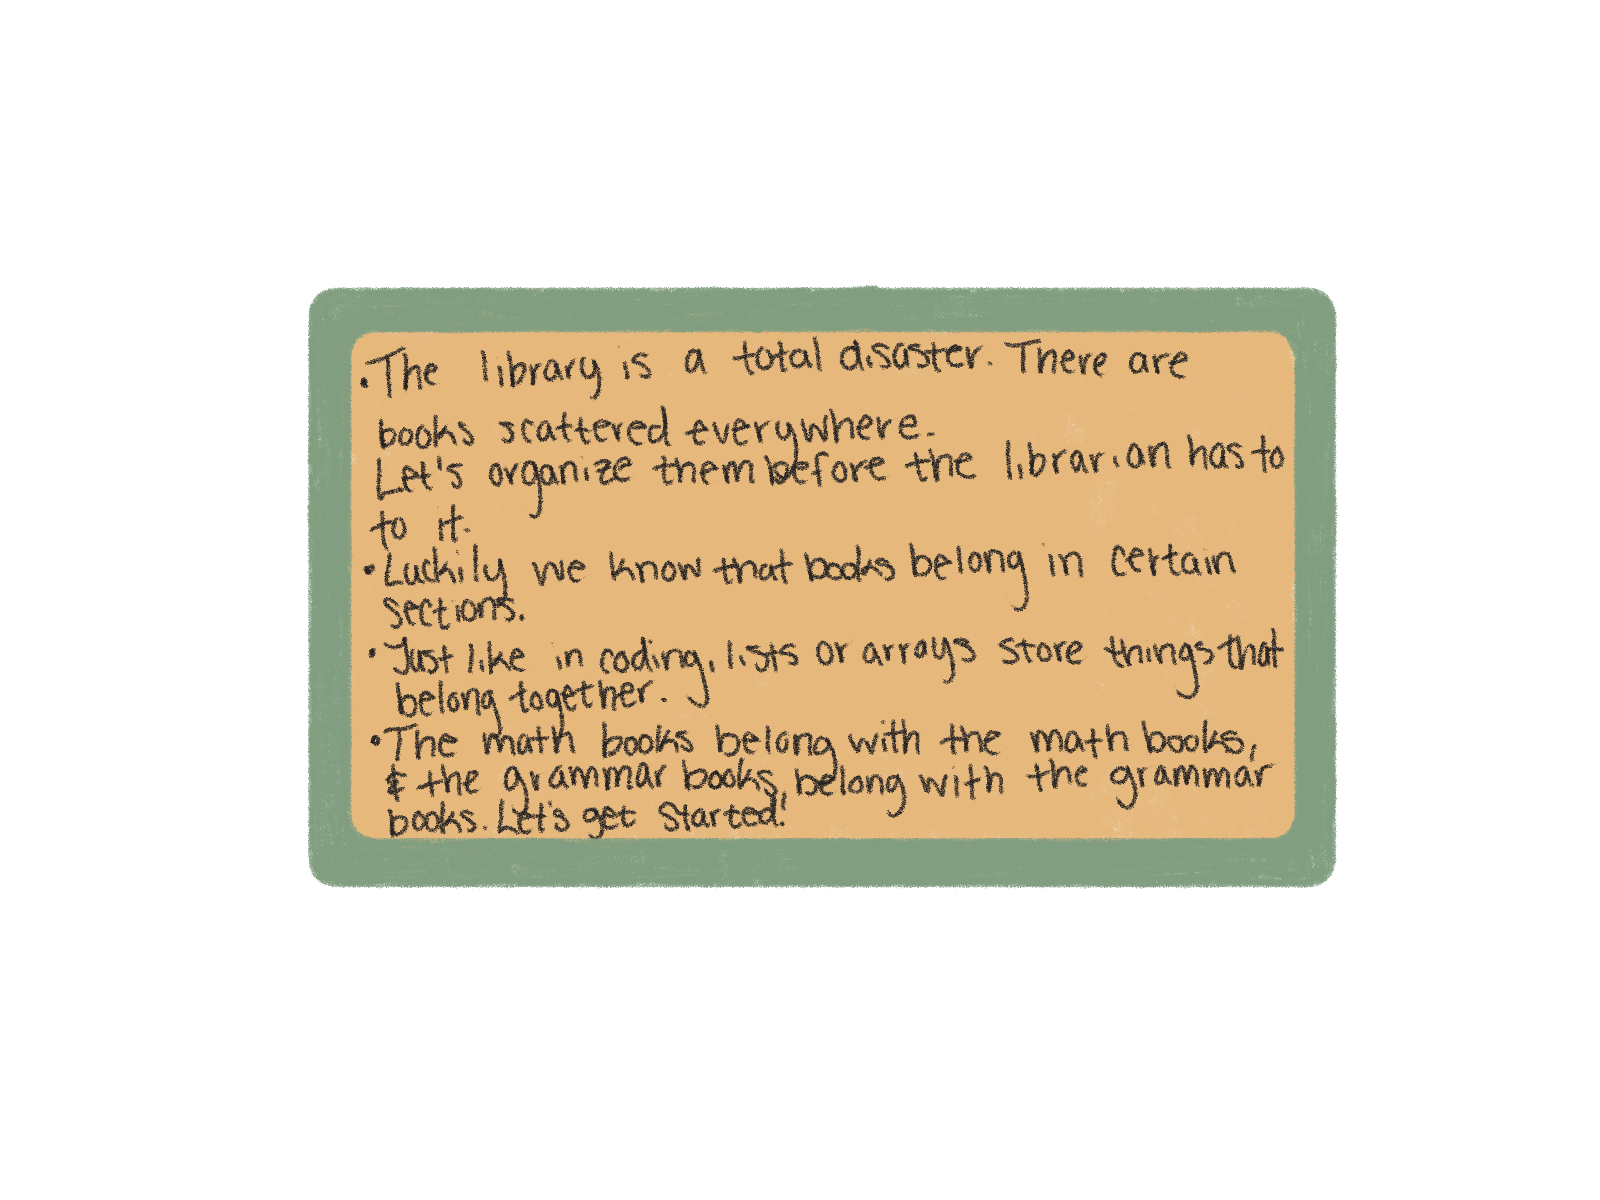 • The library is a total disaster. There are
books scattered everywhere.
Let's organize them before the librarian has to
to it.
• Luckily we know that books belong in certain
sections.
• Just like in coding, lists or arrays store things that
belong together.
• The math books belong with the math books,
& the grammar books, belong with the grammar
books. Let's get started!